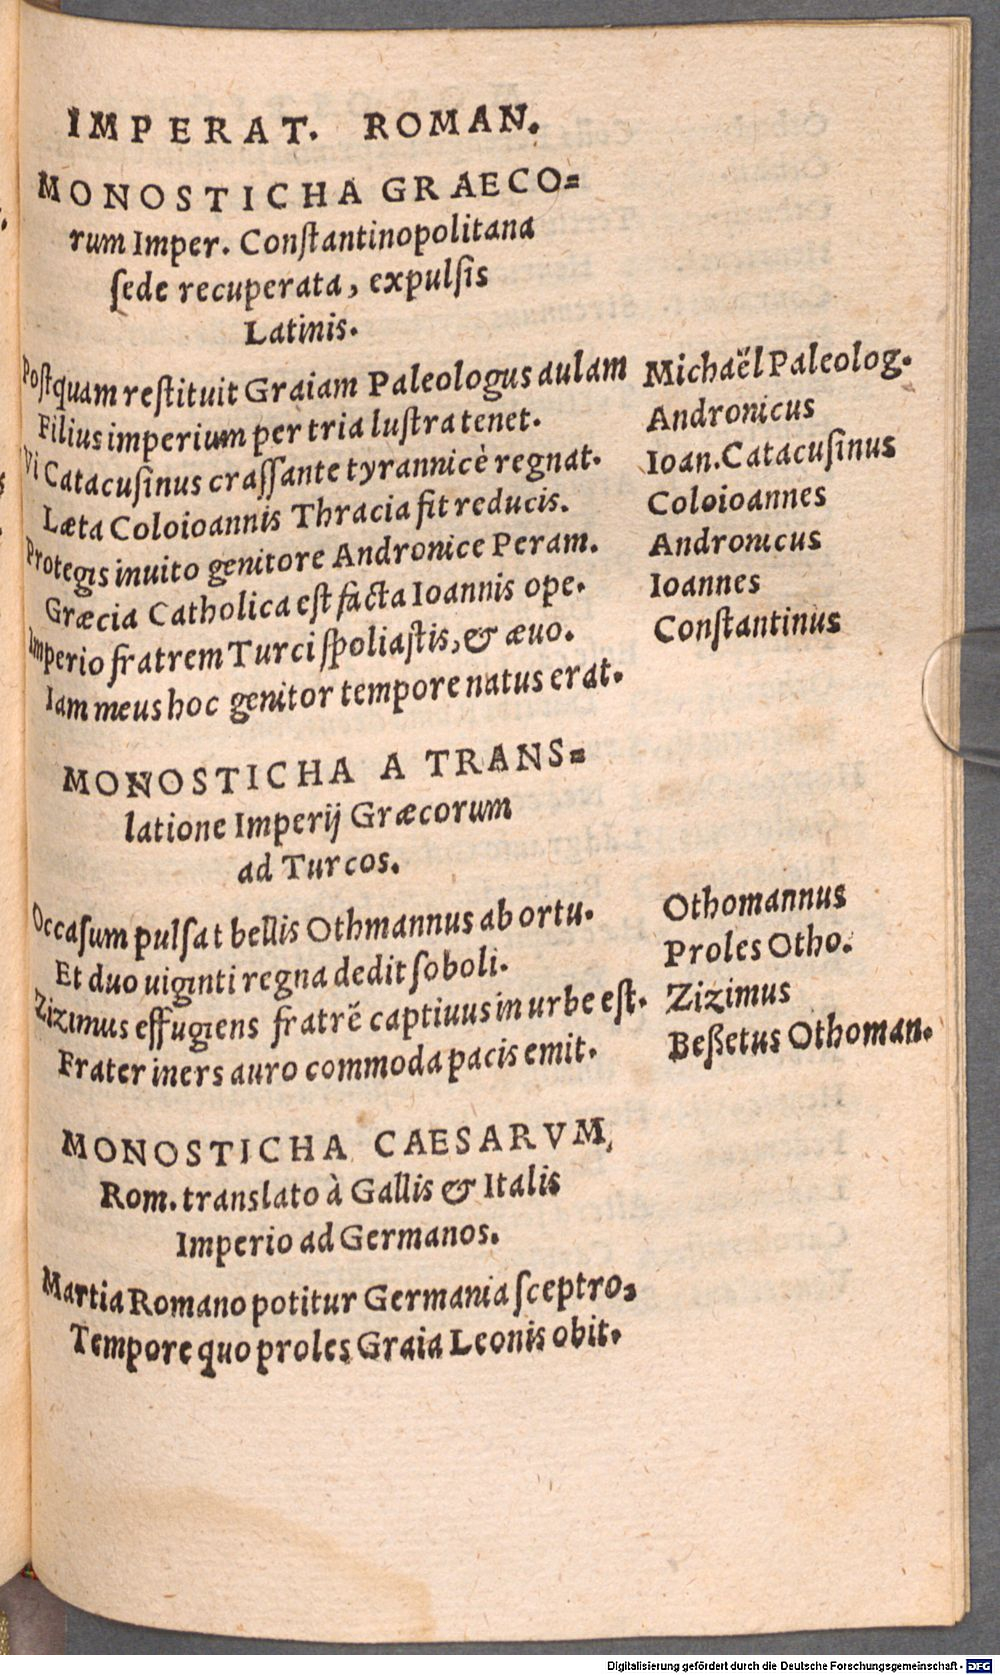 IMPERAT. ROMAN.
MONOSTICHA GRAECO=
rum Imper. Conſtantinopolitana
ſede recuperata, expulſis
Latinis.
Poſtquam reſtituit Graiam Paleologus aulam Michaël Paleolog.
Filius imperium per tria luſtra tenet. Andronicus
Vi Catacuſinus craſſante tyrannicè regnat. Ioan. Catacuſinus
Læta Coloioannis Thracia fit reducis. Coloioannes
Protegis inuito genitore Andronice Peram. Andronicus
Græcia Catholica est facta Ioannis ope. Ioannes
Imperio fratrem Turci ſpoliaſtis, & æuo. Conſtantinus
Iam meus hoc genitor tempore natus erat.
MONOSTICHA A TRANS=
latione Imperij Græcorum
ad Turcos.
Occaſum pulſat bellis Othmannus ab ortu. Othomannus
Et duo uiginti regna dedit ſoboli. Proles Otho.
Zizimus effugiens fratrẽ captiuus in urbe eſt. Zizimus
Frater iners auro commoda pacis emit. Beßetus Othoman.
MONOSTICHA CAESARVM,
Rom. translato à Gallis & Italis
Imperio ad Germanos.
Martia Romano potitur Germania ſceptro,
Tempore quo proles Graia Leonis obit.
Digitalisierung gefördert durch die Deutsche Forschungsgemeinschaft - DFG